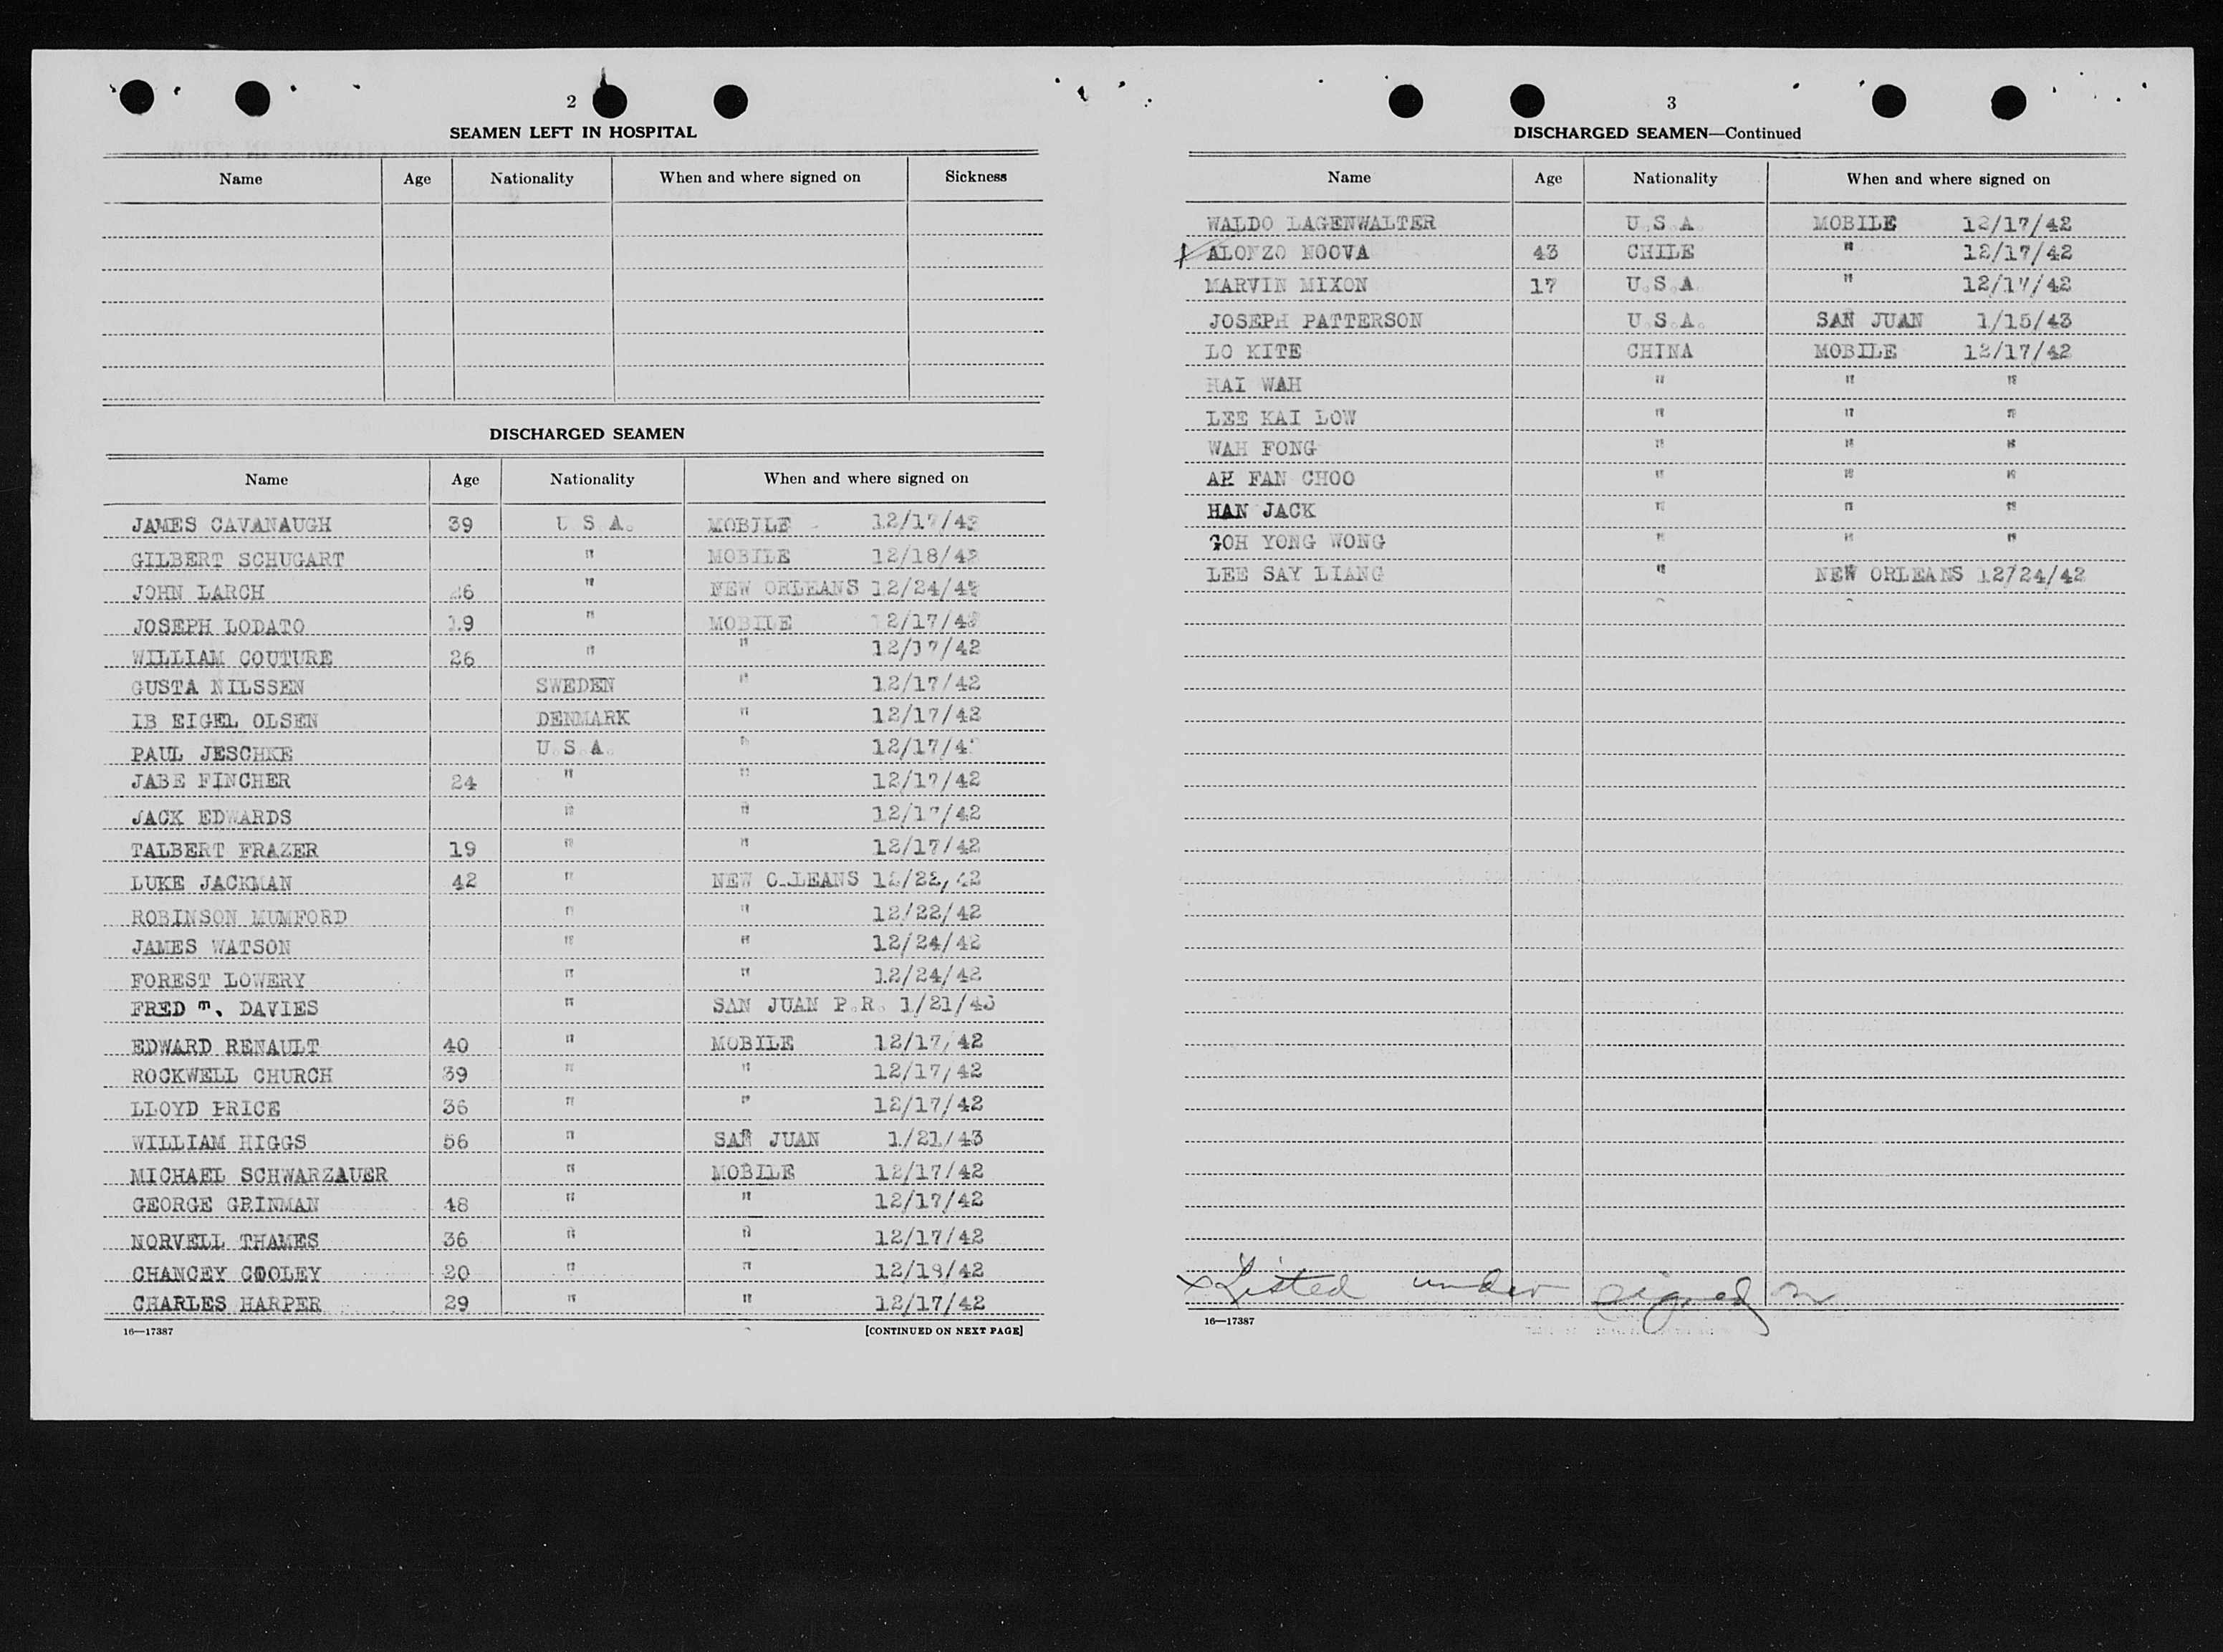 2
SEAMEN LEFT IN HOSPITAL
Name Age Nationality When and where signed on Sickness
DISCHARGED SEAMEN
Name Age Nationality When and where signed on
JAMES CAVANAUGH 39 U.S.A. MOBILE 12/17/42
GILBERT SCHUGART " MOBILE 12/18/42
JOHN LARCH " NEW ORLEANS 12/24/42
JOSEPH LODATO 19 " MOBILE 12/17/42
WILLIAM COUTURE 26 " " 12/17/42
GUSTA NILSSEN SWEDEN " 12/17/42
IB EIGEL OLSEN DENMARK " 12/17/42
PAUL JESCHKE U.S.A. " 12/17/42
JABE FINCHER 24 " " 12/17/42
JACK EDWARDS " " 12/17/42
TALBERT FRAZER 19 " " 12/17/42
LUKE JACKMAN 42 " NEW ORLEANS 12/22/42
ROBINSON MUMFORD " " 12/22/42
JAMES WATSON " " 12/24/42
FOREST LOWERY " " 12/24/42
FRED T. DAVIES " SAN JUAN P.R. 1/21/43
EDWARD RENAULT 40 " MOBILE 12/17/42
ROCKWELL CHURCH 39 " " 12/17/42
LLOYD PRICE 36 " " 12/17/42
WILLIAM HIGGS 56 " SAN JUAN 1/21/43
MICHAEL SCHWARZAUER " MOBILE 12/17/42
GEORGE GRINMAN 48 " " 12/17/42
NORVELL THAMES 36 " " 12/17/42
CHANCEY COOLEY 20 " " 12/18/42
CHARLES HARPER 29 " " 12/17/42
16—17387 [CONTINUED ON NEXT PAGE]
3
DISCHARGED SEAMEN—Continued
Name Age Nationality When and where signed on
WALDO LAGENWALTER U.S.A. MOBILE 12/17/42
x ALONZO NOOVA 43 CHILE " 12/17/42
MARVIN MIXON 17 U.S.A. " 12/17/42
JOSEPH PATTERSON U.S.A. SAN JUAN 1/15/43
LO KITE CHINA MOBILE 12/17/42
HAI WAH " " "
LEE KAI LOW " " "
WAH FONG " " "
AH FAN CHOO " " "
HAN JACK " " "
GOH YONG WONG " " "
LEE SAY LIANG " NEW ORLEANS 12/24/42
x Listed under signed on
16—17387